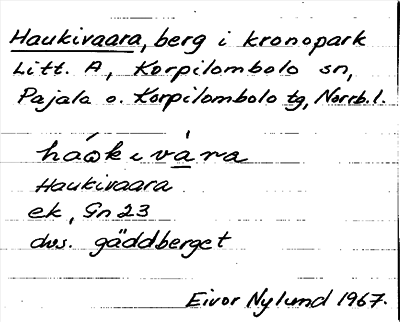 Haukivaara, berg i kronopark
Litt. A, Korpilombolo sn,
Pajala o. Korpilombolo tg, Norrb.l.
háωkivàra
Haukivaara
ek, Gn 23
dvs. gäddberget
Eivor Nylund 1967.